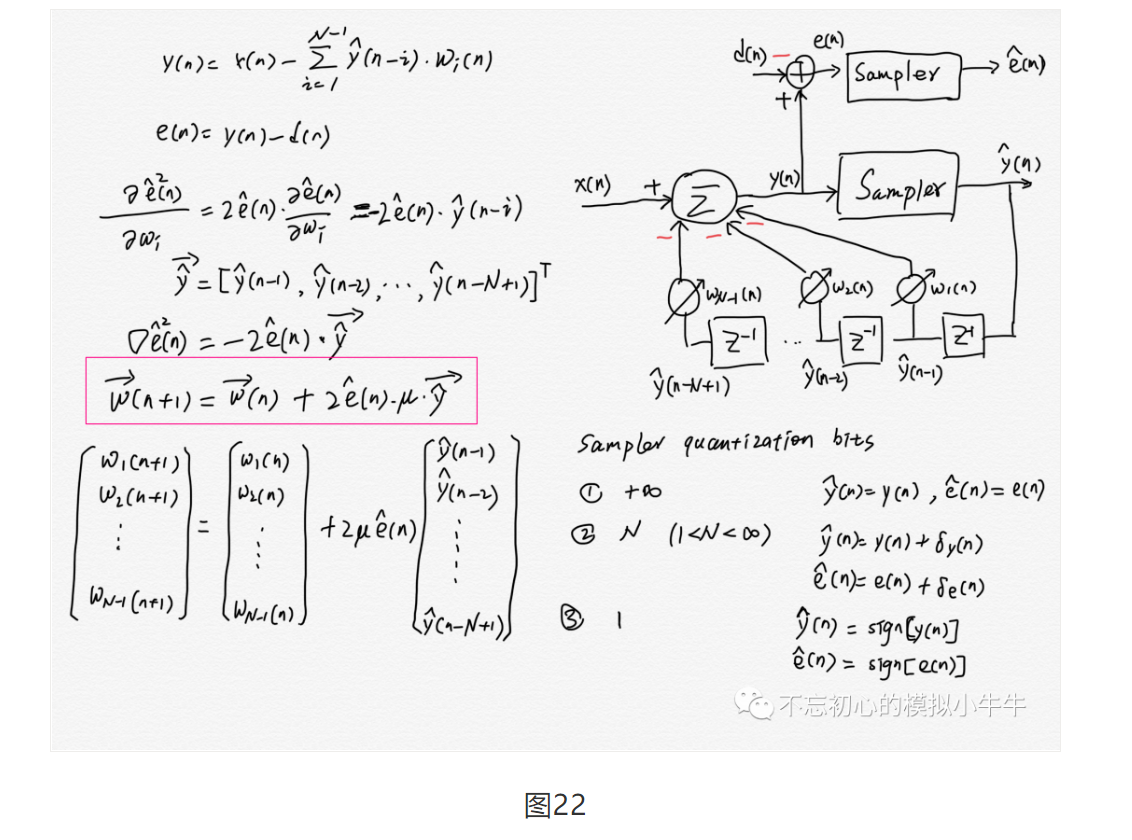 y(n) = x(n) − Σ_{i=1}^{N−1} ŷ(n−i)·w_i(n)
e(n) = y(n) − d(n)
∂ê²(n)/∂w_i = 2ê(n)·∂ê(n)/∂w_i = −2ê(n)·ŷ(n−i)
ŷ⃗ = [ŷ(n−1), ŷ(n−2), ···, ŷ(n−N+1)]ᵀ
∇ê²(n) = −2ê(n)·ŷ⃗
w⃗(n+1) = w⃗(n) + 2ê(n)·μ·ŷ⃗
[w₁(n+1) w₂(n+1) ⋮ w_{N−1}(n+1)] = [w₁(n) w₂(n) ⋮ w_{N−1}(n)] + 2μê(n) [ŷ(n−1) ŷ(n−2) ⋮ ŷ(n−N+1)]
d(n) − e(n)
+ Sampler ê(n)
+
x(n) + Σ y(n) Sampler ŷ(n)
− − −
w_{N−1}(n) w₂(n) w₁(n)
Z⁻¹ ··· Z⁻¹ Z⁻¹
ŷ(n−N+1) ŷ(n−2) ŷ(n−1)
Sampler quantization bits
① +∞ ŷ(n) = y(n), ê(n) = e(n)
② N (1<N<∞) ŷ(n) = y(n) + δy(n)
ê(n) = e(n) + δe(n)
③ 1 ŷ(n) = sign[y(n)]
ê(n) = sign[e(n)]
不忘初心的模拟小牛牛
图22